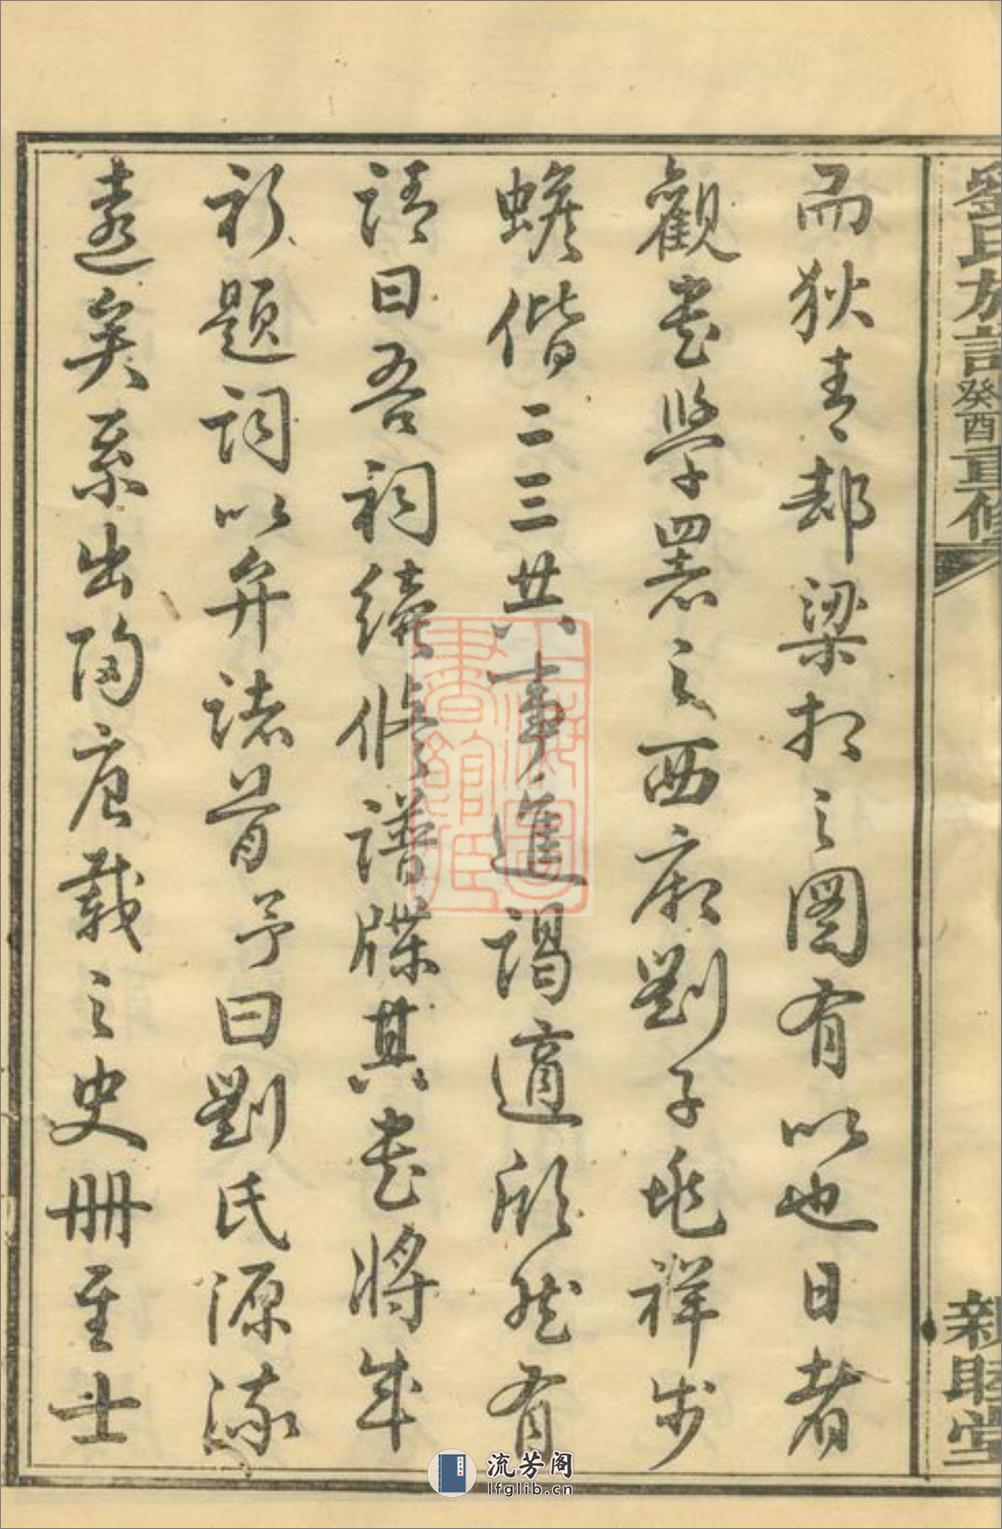 劉氏族譜 癸酉重修 親睦堂
而狄青却梁相之圖有以也日者
觀書學署之西廂劉子兆祥步
蟾偕二三共事進謁適然有
請曰吾祠續修譜牒其書將成
祈題詞以弁諸首予曰劉氏源流
遠矣系出陶唐載之史冊至士
上海圖書館藏
流芳阁
lfglib.cn